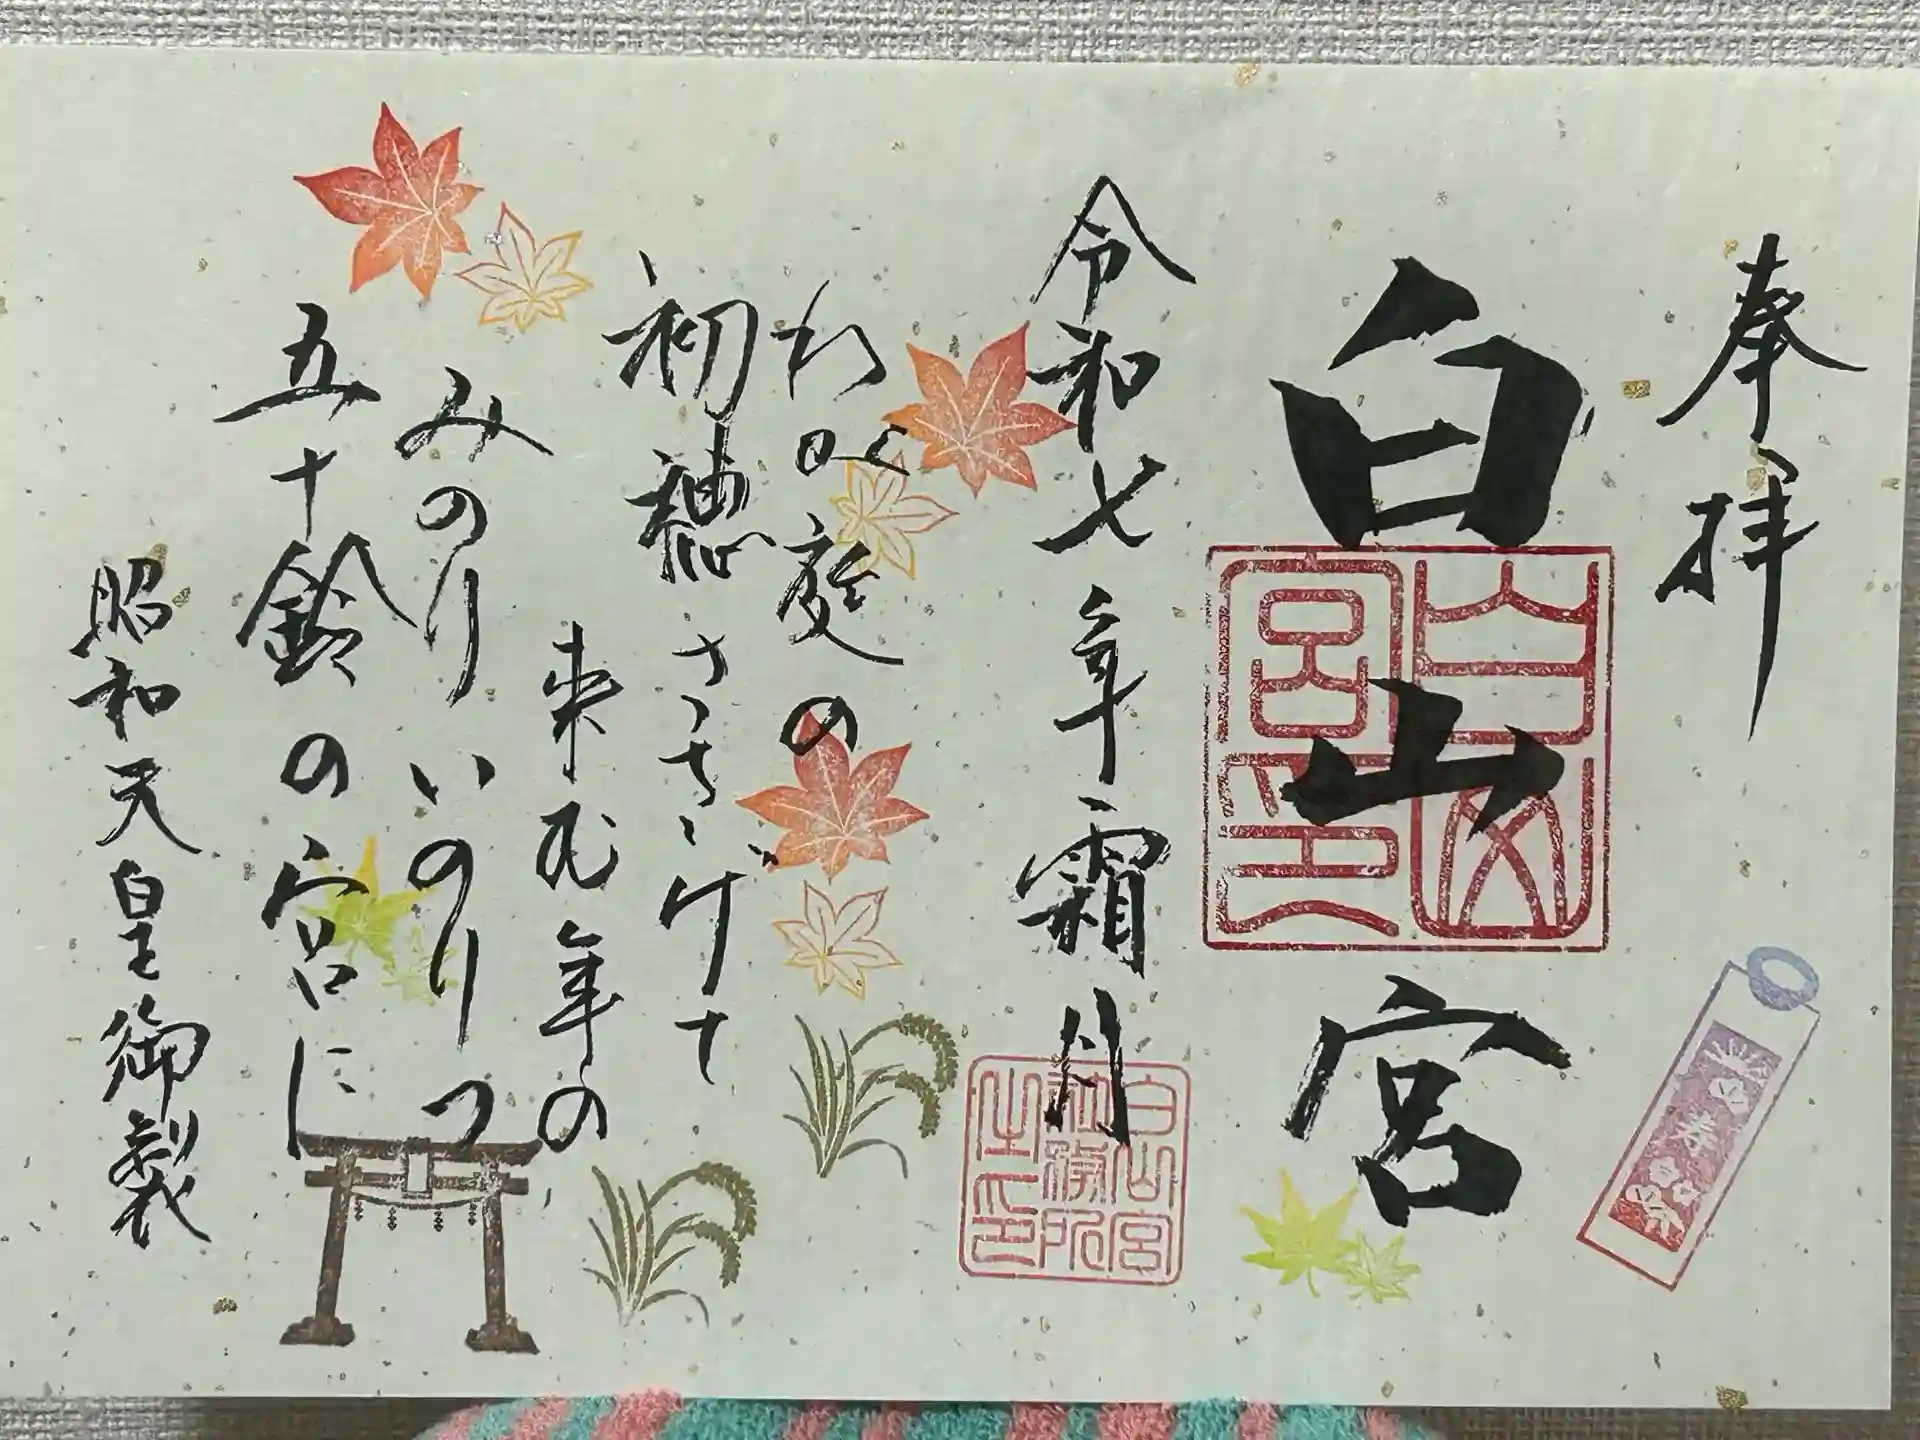 奉拝
白山宮
白山宮印
令和七年霜月
白山宮社務所之印
わが庭の
初穂さゝげて
来む年の
みのりいのりつ
五十鈴の宮に
昭和天皇御製